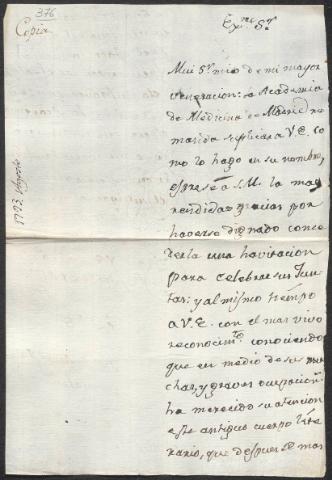 376
Copia
Ex.mo S.r
Mui S.r mio de mi mayor
veneracion: La Academia
de Medicina de Madrid me
manda suplicar a V.E. co
mo lo hago en su nombre,
esprese á S.M. las mas
rendidas gracias por
haverse dignado conce
derla una havitacion
para celebrar sus Jun
tas: y al mismo tiempo
a V.E. con el mas vivo
reconocim.to conociendo
que en medio de sus mu
chas, y graves ocupacion.s
ha merecido su atencion
este antiguo cuerpo lite
rario, que despues de mas
1793 Agosto